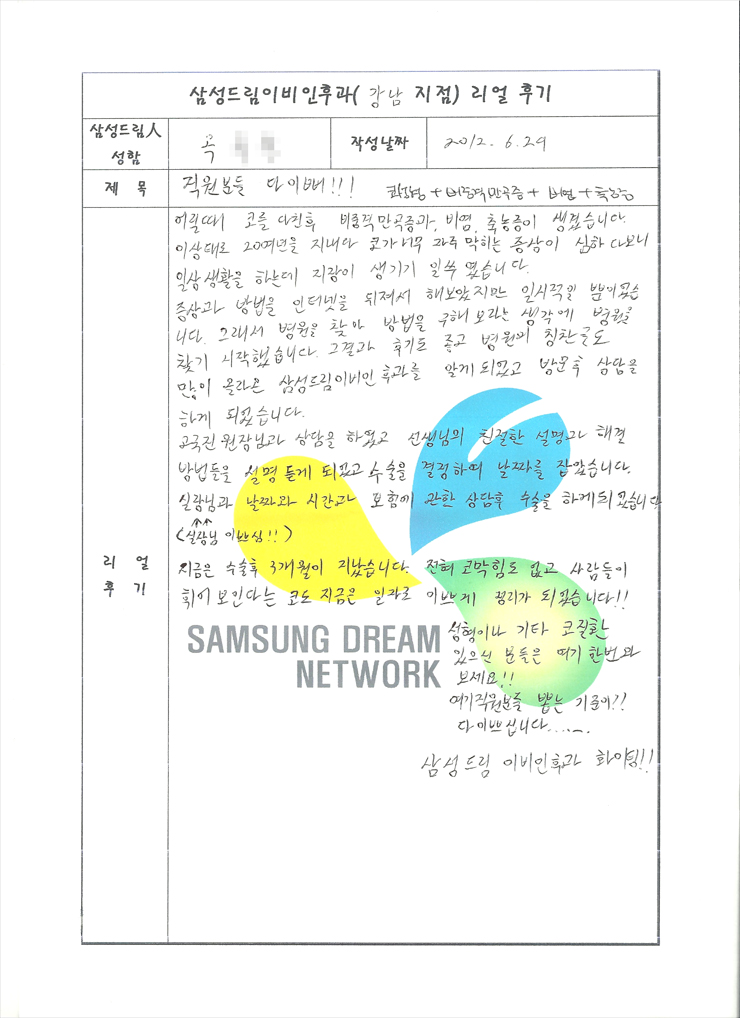 삼성드림이비인후과( 강남 지점) 리얼 후기
삼성드림人 성함
옥
작성날짜
2012. 6. 29
제 목
직원분들 다 이뻐!!! 코성형 + 비중격만곡증 + 비염 + 축농증
리 얼 후 기
어릴때 코를 다친후 비중격만곡증과, 비염, 축농증이 생겼습니다.
이상태로 20여년을 지내다 코가 너무 자주 막히는 증상이 심하다보니
일상생활을 하는데 지장이 생기기 일쑤 였습니다.
증상과 방법을 인터넷을 뒤져서 해보았지만 일시적일 뿐이였습
니다. 그래서 병원을 찾아 방법을 구해 보라는 생각에 병원을
찾기 시작했습니다. 그결과 후기도 좋고 병원의 칭찬글도
많이 올라온 삼성드림이비인후과를 알게 되었고 방문후 상담을
하게 되었습니다.
고국진 원장님과 상담을 하였고 선생님의 친절한 설명과 해결
방법들을 설명 듣게 되었고 수술을 결정하여 날짜를 잡았습니다.
실장님과 날짜와 시간과 보험에 관한 상담후 수술을 하게되었습니다
(실장님 이쁘심!!)
지금은 수술후 3개월이 지났습니다. 전혀 코막힘도 없고 사람들이
휘어 보인다는 코도 지금은 일자로 이쁘게 정리가 되었습니다!!
성형이나 기타 코질환
있으신 분들은 여기 한번 와
보세요!!
여기직원분들 뽑는 기준이??
다이쁘십니다......
삼성드림 이비인후과 화이팅!!
SAMSUNG DREAM
NETWORK